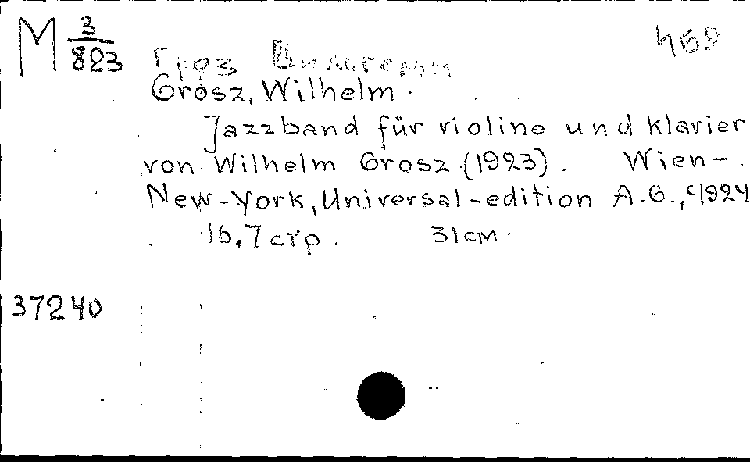 M 3/823
469
Грос Вильгельм
Grosz, Wilhelm.
Jazzband für violine und klavier
von Wilhelm Grosz (1923). Wien-
New-York, Universal-edition A.G., c1924
16,7 стр. 31 см.
37240